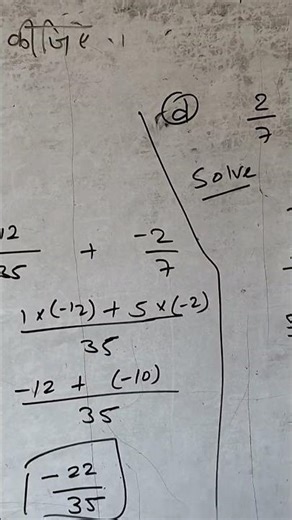 कीजिए ।
(d) 2/7
Solve
-12/35 + -2/7
1×(-12) + 5×(-2)/35
-12 + (-10)/35
-22/35